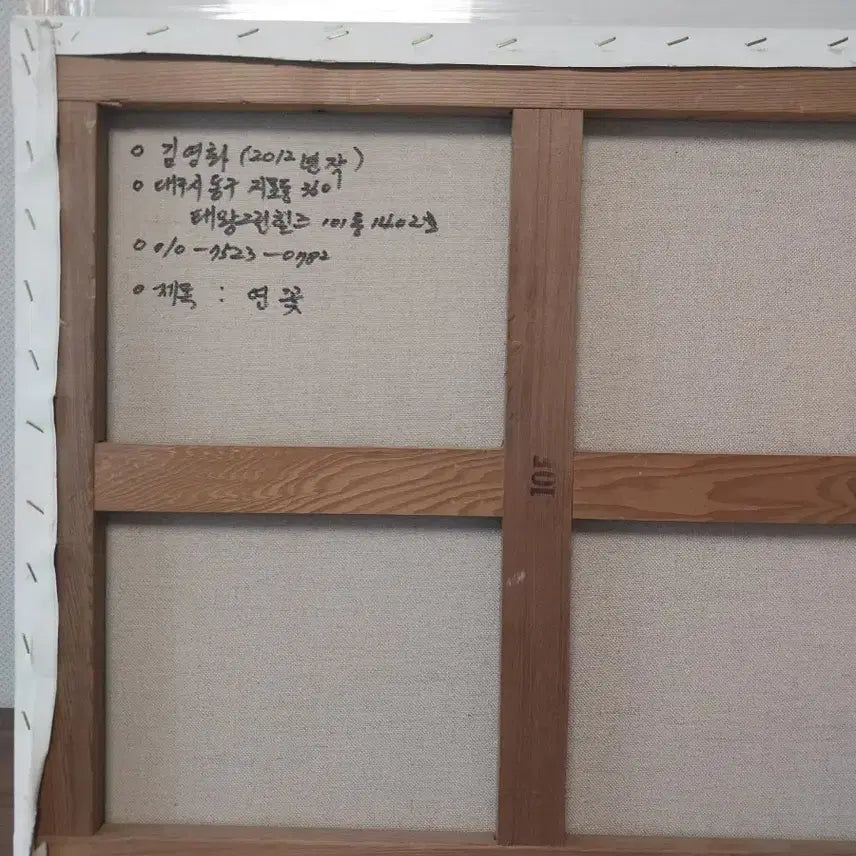 o 김영화 (2012년작)
o 대구시 동구 지묘동 360
태왕그린힐즈 101동 1402호
o 010-7523-0782
o 제목 : 연꽃
10F